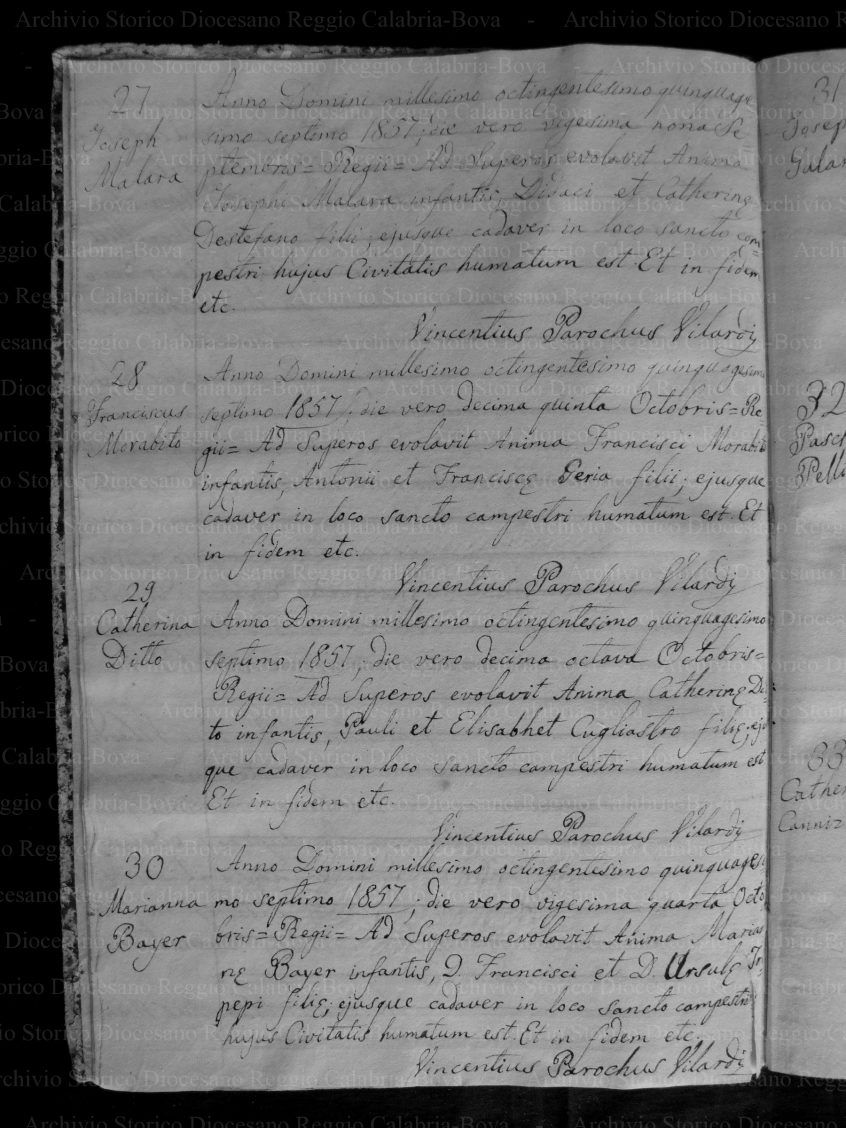 27
Joseph
Malara
Anno Domini millesimo octingentesimo quinquage
simo septimo 1857; die vero vigesima nona Se
ptembris= Regii= Ad Superos evolavit Anima
Josephi Malara infantis, Didaci et Catherinę
Destefano filii; ejusque cadaver in loco sancto cam=
pestri hujus Civitatis humatum est Et in fidem
etc.
Vincentius Parochus Vilardi
28
Franciscus
Morabito
Anno Domini millesimo octingentesimo quinquagesimo
septimo 1857; die vero decima quinta Octobris= Re
gii= Ad Superos evolavit Anima Francisci Morabito
infantis, Antonii et Franciscę Geria filii; ejusque
cadaver in loco sancto campestri humatum est. Et
in fidem etc.
Vincentius Parochus Vilardi
29
Catherina
Ditto
Anno Domini millesimo octingentesimo quinquagesimo
septimo 1857; die vero decima octava Octobris=
Regii= Ad Superos evolavit Anima Catherinę Dit=
to infantis, Pauli et Elisabhet Cugliastro filię; ejus
que cadaver in loco sancto campestri humatum est
Et in fidem etc.
Vincentius Parochus Vilardi
30
Marianna
Bayer
Anno Domini millesimo octingentesimo quinquagesi
mo septimo 1857; die vero vigesima quarta Octo
bris= Regii= Ad Superos evolavit Anima Marian
nę Bayer infantis, D. Francisci et D. Ursulę Tr=
pepi filię; ejusque cadaver in loco sancto campestri
hujus Civitatis humatum est. Et in fidem etc.
Vincentius Parochus Vilardi
31
Josep
Galar
32
Pasc
Pelli
33
Cather
Canniz
Archivio Storico Diocesano Reggio Calabria-Bova - Archivio Storico Diocesano Reggio Calabria-Bova